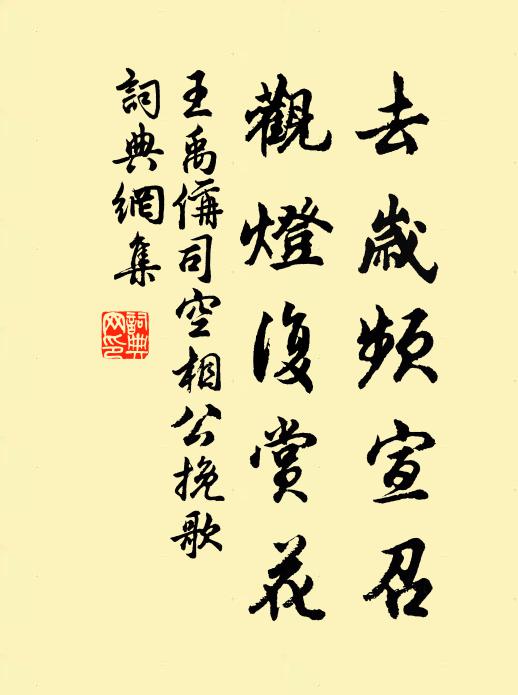 去歲頻宣召
觀燈復賞花
王禹偁司空相公挽歌
詞典網集
詞典網印